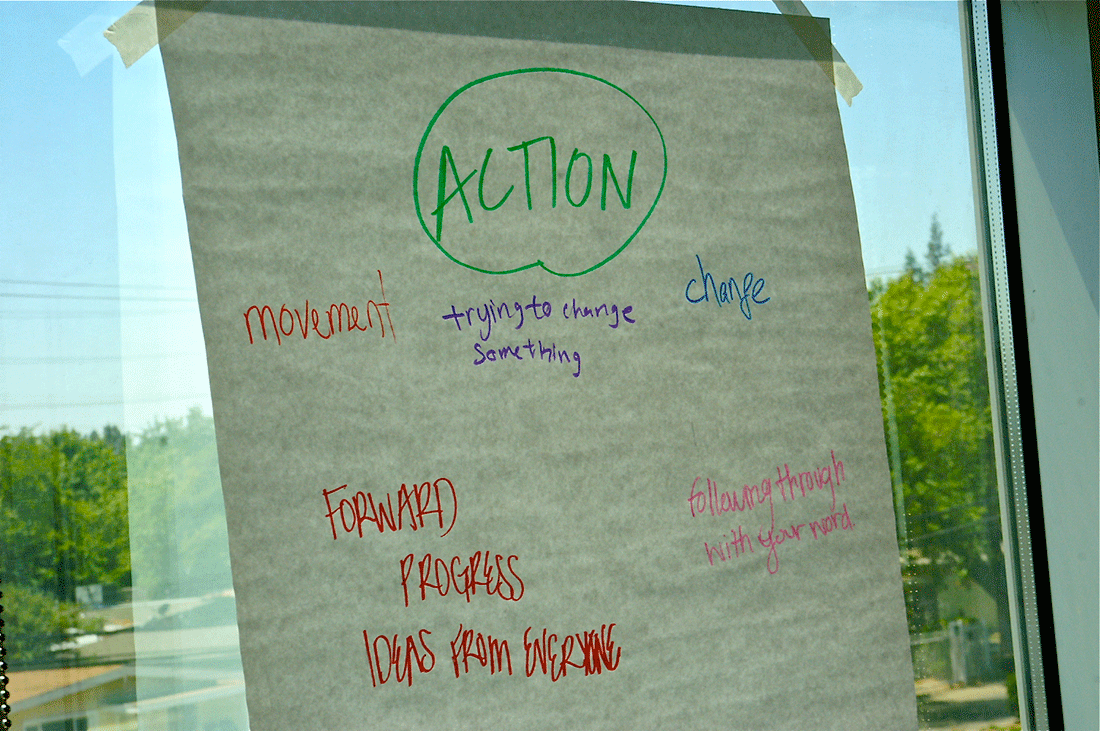 ACTION
movement
trying to change
something
change
FORWARD
PROGRESS
IDEAS FROM EVERYONE
following through
with your word.